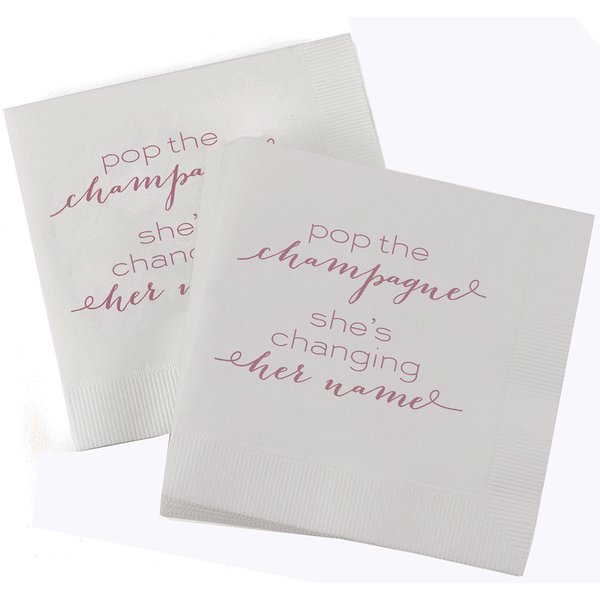 pop the
champagne
she's
changing
her name
pop the
champagne
she's
changing
her name